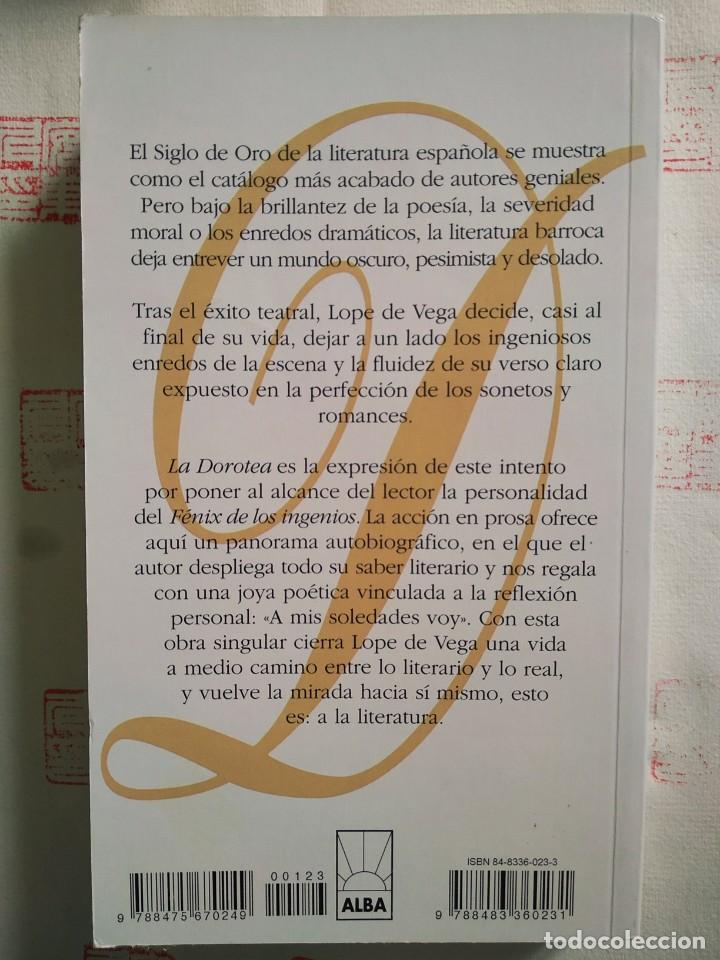 El Siglo de Oro de la literatura española se muestra
como el catálogo más acabado de autores geniales.
Pero bajo la brillantez de la poesía, la severidad
moral o los enredos dramáticos, la literatura barroca
deja entrever un mundo oscuro, pesimista y desolado.
Tras el éxito teatral, Lope de Vega decide, casi al
final de su vida, dejar a un lado los ingeniosos
enredos de la escena y la fluidez de su verso claro
expuesto en la perfección de los sonetos y
romances.
La Dorotea es la expresión de este intento
por poner al alcance del lector la personalidad
del Fénix de los ingenios. La acción en prosa ofrece
aquí un panorama autobiográfico, en el que el
autor despliega todo su saber literario y nos regala
con una joya poética vinculada a la reflexión
personal: «A mis soledades voy». Con esta
obra singular cierra Lope de Vega una vida
a medio camino entre lo literario y lo real,
y vuelve la mirada hacia sí mismo, esto
es: a la literatura.
D
00123
9 788475 670249
ALBA
ISBN 84-8336-023-3
9 788483 360231
todocoleccion